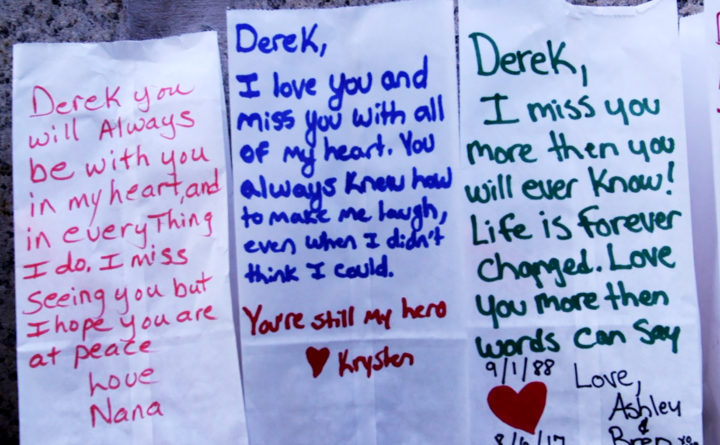 Derek you
will Always
be with you
in my heart, and
in everyThing
I do. I miss
Seeing you but
I hope you are
at peace
Love
Nana
Derek,
I love you and
miss you with all
of my heart. You
always knew how
to make me laugh,
even when I didn't
think I could.
You're still My hero
Krysten
Derek,
I miss you
more then you
will ever Know!
Life is forever
changed. Love
you more then
words can Say
9/1/88
Love,
Ashley
&